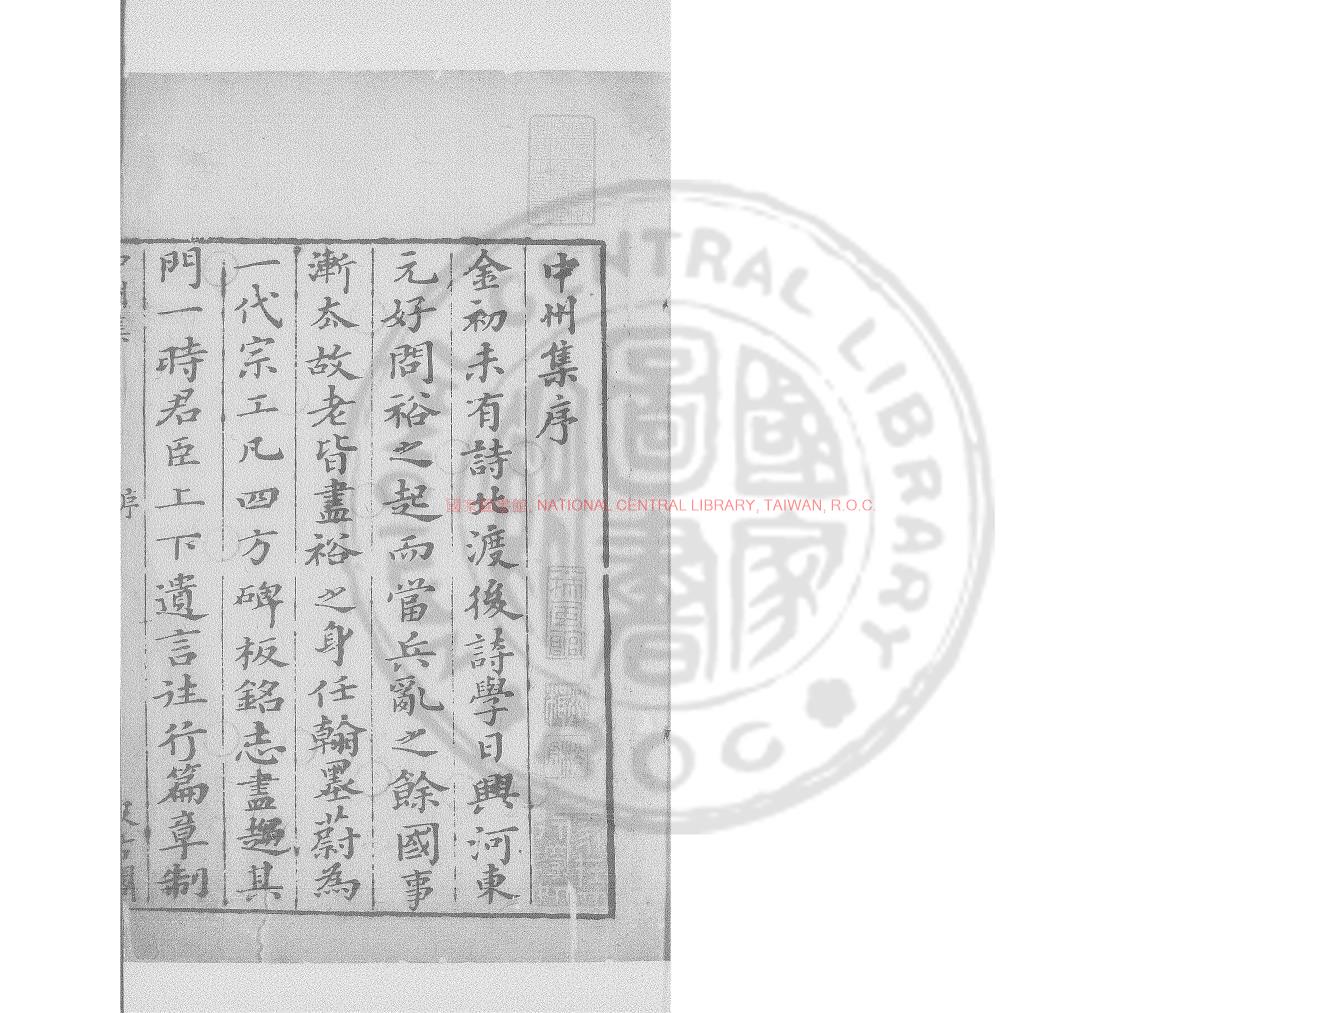 中州集序
金初未有詩北渡後詩學日興河東
元好問裕之起而當兵亂之餘國事
漸厺故老皆盡裕之身任翰墨蔚為
一代宗工凡四方碑板銘志盡趨其
門一時君臣上下遺言往行篇章制
序
國家圖書館, NATIONAL CENTRAL LIBRARY, TAIWAN, R.O.C.
CENTRAL LIBRARY
ROC
國家圖書